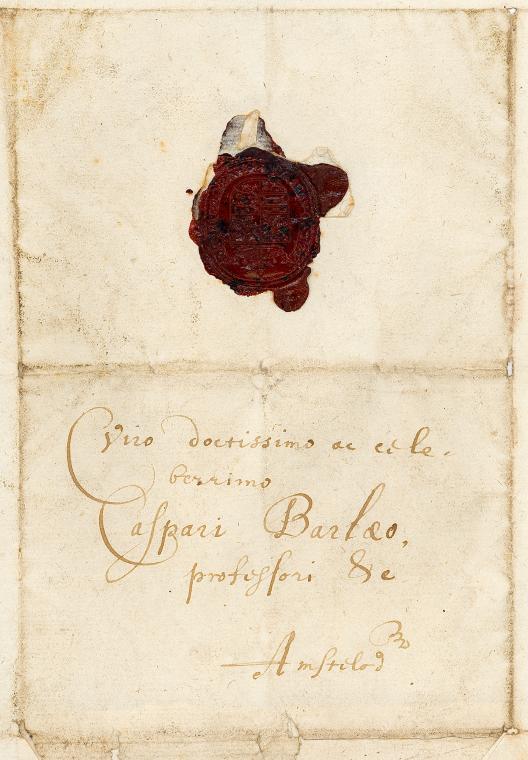 Viro doctissimo ac cele-
berrimo
Caspari Barlæo,
professori &c
Amstelod